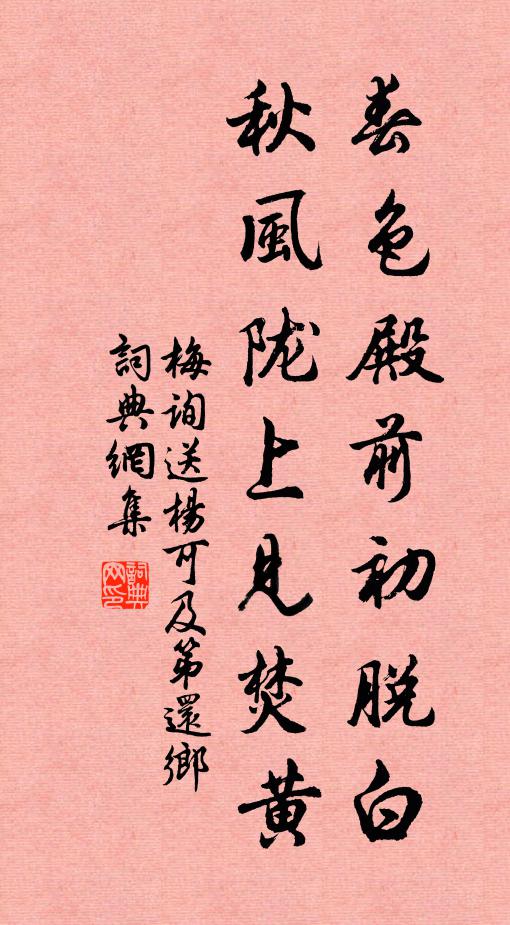 春色殿前初脱白
秋風陇上見焚黄
梅詢送楊可及第還鄉
詞典網集
詞典
网印